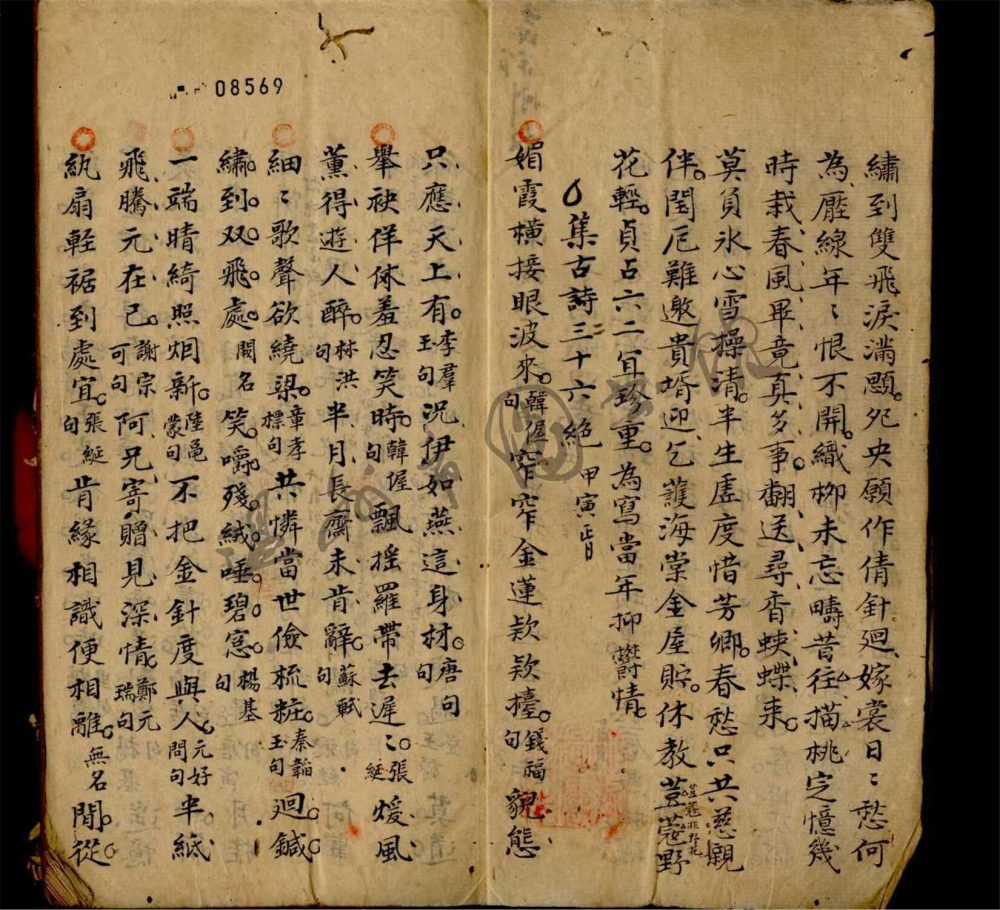 08569
繡到雙飛淚滿顋。夗央願作倩針廻。嫁裳日〻愁何
為。壓線年〻恨不開。織柳未忘疇昔往。描桃定憶幾
時栽。春風畢竟真多事。翻送尋香蛺蝶来。
莫負氷心雪操清。半生虛度惜芳卿。春愁只共慈親
伴。閏厄難邀貴壻迎。乞護海棠金屋貯。休教荳蔻野
荳蔻非野花
花輕。貞占六二宜珍重。為寫當年抑欝情。
集古詩三十六絶 甲寅正月
媚霞橫接眼波來。韓偓句 窄窄金蓮欵欵擡。錢福句 貌態
只應天上有。李羣玉句 況伊如燕這身材。唐句
舉袂佯佅羞忍笑時。韓偓句 飄摇羅帶去遲〻。張綖 煖風
薰得遊人醉。林洪句 半月長齋未肯辭。蘇軾句
細〻歌聲欲繞梁。章孝標句 共憐當世儉梳粧。秦韜玉句 廻鍼
繡到双飛處。闕名 笑嚼殘絨唾碧窓。楊基句
一端晴綺照烟新。陸龜蒙句 不把金針度與人。元好問句 半紙
飛騰元在己。謝宗可句 阿兄寄贈見深情。鄭元瑞句
紈扇輊裾到處宜。張綖句 肯緣相識便相離。無名 閒從